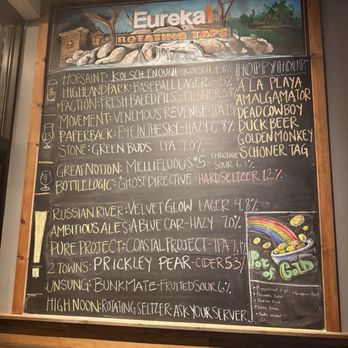 Eureka!
ROTATING TAPS
HOFSAINT: KOLSCH ENOUGH KOLSCH 4.6%
HIGHLAND PARK: BASEBALL LAGER
FACTION: FRESH PALED PILSNER 5%
MOVEMENT: VENEMOUS REVENGE
PAPERBACK: EYE IN THE SKY-HAZY 6.8%
STONE: GREEN BUDS IPA 7.0%
GREAT NOTION: MELLIFLUOUS *5 SMOOTHIE SOUR 6.3%
BOTTLELOGIC: GHOST DIRECTIVE HARD SELTZER 12%
RUSSIAN RIVER: VELVET GLOW LAGER 4.8%
AMBITIOUS ALES: A BLUE CAR-HAZY 7.0%
PURE PROJECT: COASTAL PROJECT-IPA
2 TOWNS: PRICKLY PEAR-CIDER 5.3%
UNSUNG: BUNKMATE-FRUITED SOUR 6%
HIGH NOON: ROTATING SELTZER-ASK YOUR SERVER
HOPPY HOUR
A LA PLAYA
AMALGAMATOR
DEAD COWBOY
DUCK BEER
GOLDEN MONKEY
SCHONER TAG
Pot of Gold